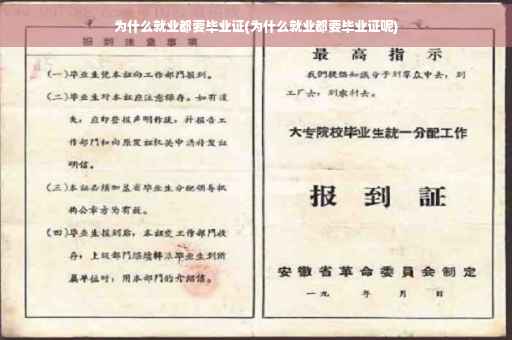 为什么就业都要毕业证(为什么就业都要毕业证呢)
报到注意事项
(一)毕业生凭本証向工作部門报到。
(二)毕业生对本証应注意保存。如有遗
失，应即登报声明作废，并报告工
作部門和向原发証机关申請补发証
明信。
(三)本証必须加盖省毕业生分配領导机
构公章方为有效。
(四)毕业生报到后，本証交工作部門收
存；上级部門继續轉派毕业生到所
属单位时，用本部門的介绍信。
最高指示
我們提倡知識分子到羣众中去，到
工厂去，到农村去。
大专院校毕业生統一分配工作
报到証
安徽省革命委員会制定
一九 年 月 日